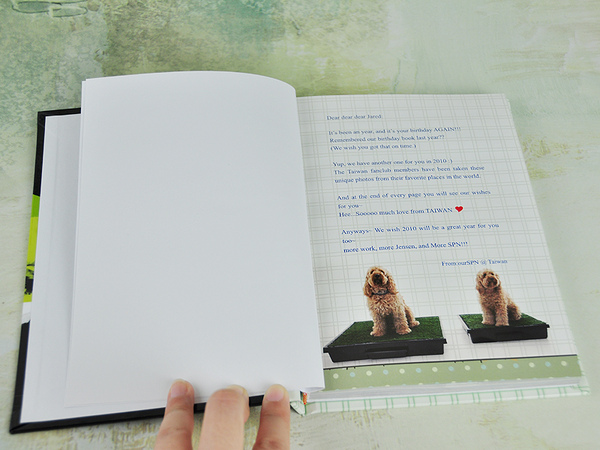 Dear dear dear Jared
It's been an year, and it's your birthday AGAIN!!!
Remembered our birthday book last year??
(We wish you got that on time.)
Yup, we have another one for you in 2010 :)
The Taiwan fanclub members have been taken these
unique photos from their favorite places in the world.
And at the end of every page you will see our wishes
for you~
Hee...Sooooo much love from TAIWAN ❤
Anyways~ We wish 2010 will be a great year for you
too~
more work, more Jensen, and More SPN!!!
From:ourSPN @ Taiwan